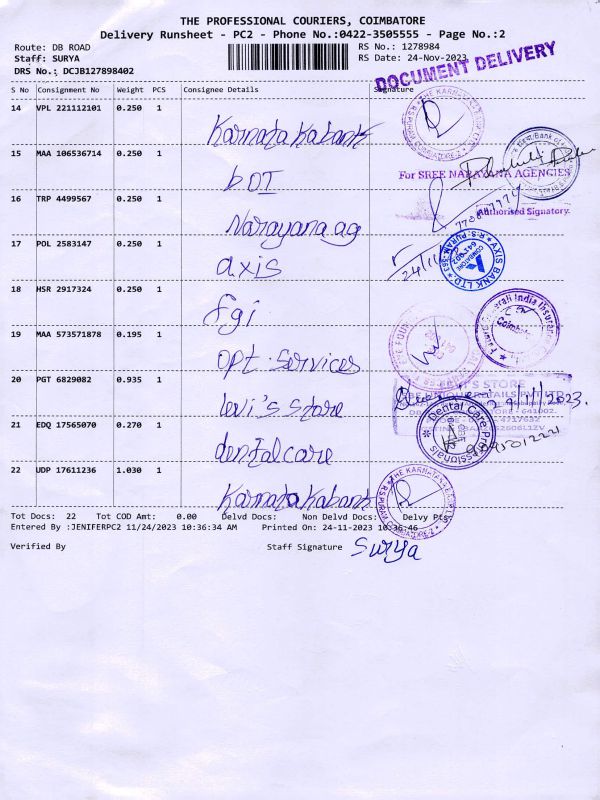 THE PROFESSIONAL COURIERS, COIMBATORE
Delivery Runsheet - PC2 - Phone No.:0422-3505555 - Page No.:2
Route: DB ROAD RS No.: 1278984
Staff: SURYA RS Date: 24-Nov-2023
DRS No.: DCJB127898402
DOCUMENT DELIVERY
S No Consignment No Weight PCS Consignee Details Signature
14 VPL 221112101 0.250 1
Karnataka bank
15 MAA 106536714 0.250 1
BOI
For SREE NARAYANA AGENCIES
16 TRP 4499567 0.250 1
Authorised Signatory.
Narayana ag
17 POL 2583147 0.250 1
axis
AXIS BANK LTD. R.S. PURAM
24/11
18 HSR 2917324 0.250 1
fgi
19 MAA 573571878 0.195 1
opt. services
20 PGT 6829082 0.935 1
LEVI'S STORE
levi's store
21 EDQ 17565070 0.270 1
Dental Care Professionals
dental care
22 UDP 17611236 1.030 1
Karnataka bank
Tot Docs: 22 Tot COD Amt: 0.00 Delvd Docs: Non Delvd Docs: Delvy Pts
Entered By :JENIFERPC2 11/24/2023 10:36:34 AM Printed On: 24-11-2023 10:36:46
Verified By Staff Signature Surya